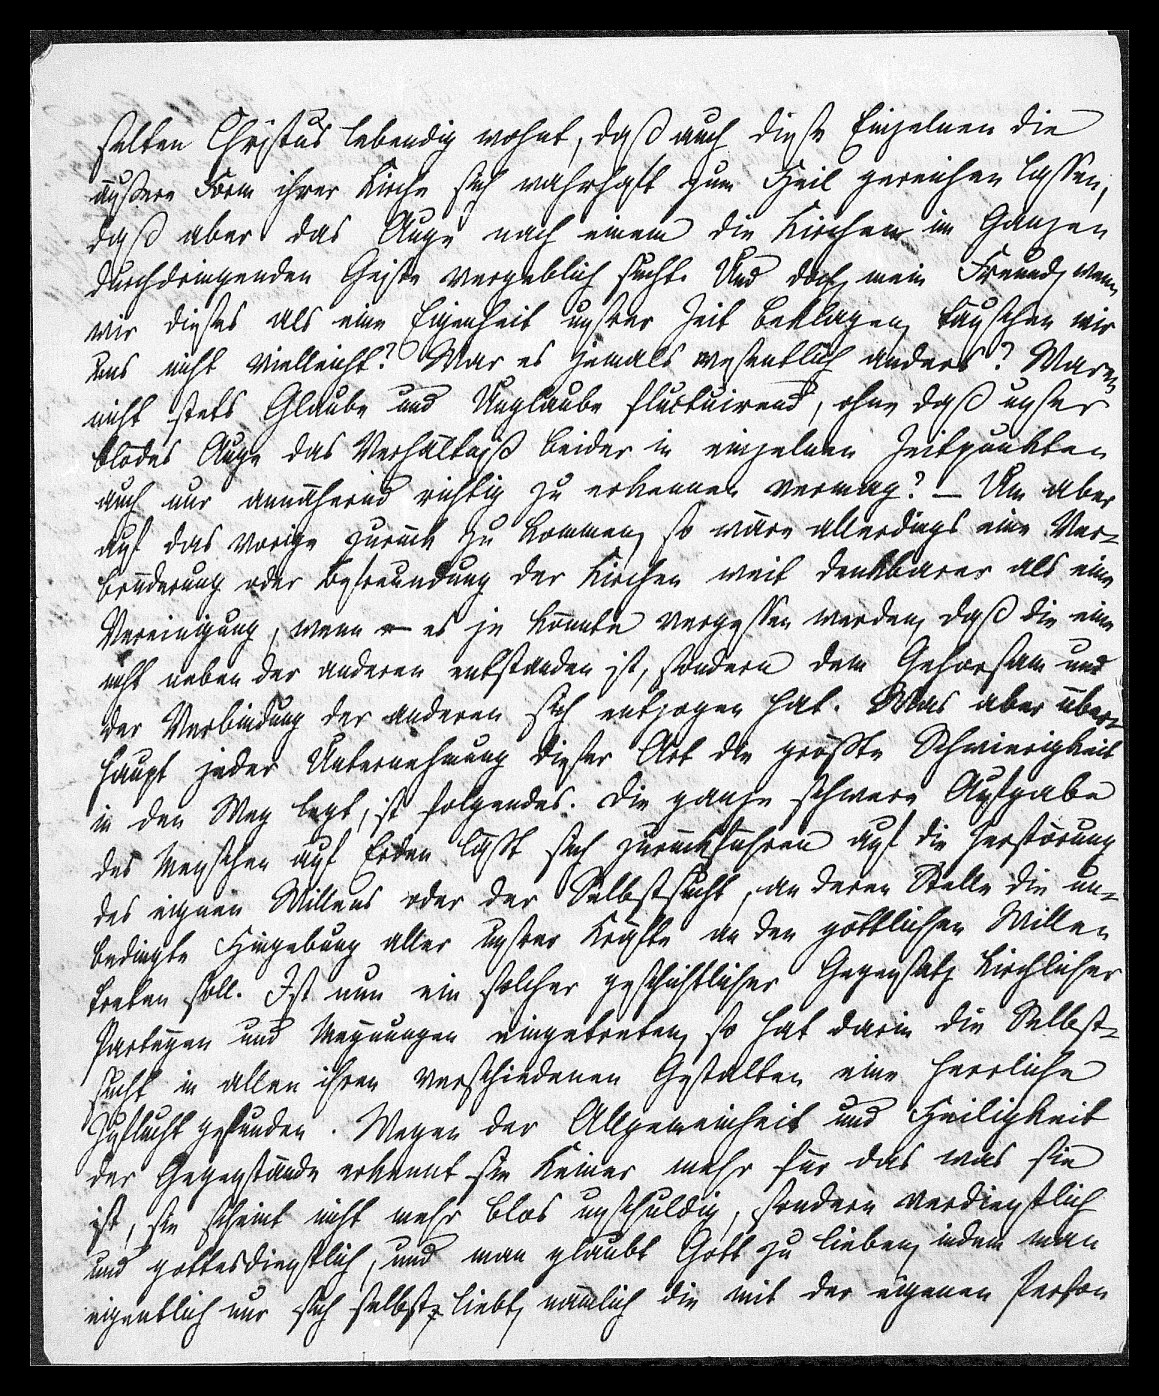 selten Christus lebendig wohnt, daß auch diese Einzelnen die
äußere Form ihrer Kirche sich wahrhaft zum Heil gereichen lassen,
daß aber das Auge nach einem die Kirchen im Ganzen
durchdringenden Geiste vergeblich sucht. Und doch, mein Freund, wenn
wir dieses als eine Eigenheit unsrer Zeit beklagen, täuschen wir
uns nicht vielleicht? War es jemals wesentlich anders? Waren
nicht stets Glaube und Unglaube fluctuirend, ohne daß unser
blödes Auge das Verhältniß beider in einzelnen Zeitpunkten
auch nur annähernd richtig zu erkennen vermag? – Um aber
auf das vorige zurück zu kommen, so wäre allerdings eine Ver-
brüderung oder Befreundung der Kirchen weit denkbarer als eine
Vereinigung, wenn es je könnte vergessen werden, daß die eine
nicht neben der anderen entstanden ist, sondern dem Gehorsam und
der Verbindung der anderen sich entzogen hat. Was aber über-
haupt jeder Unternehmung dieser Art die größte Schwierigkeit
in den Weg legt, ist folgendes. Die ganze schwere Aufgabe
des Menschen auf Erden läßt sich zurückführen auf die Zerstörung
des eignen Willens oder der Selbstsucht, an deren Stelle die un-
bedingte Hingebung aller unsrer Kräfte an den göttlichen Willen
treten soll. Ist nun ein solcher geschichtlicher Gegensatz kirchlicher
Parteyen und Meynungen eingetreten, so hat darin die Selbst-
sucht in allen ihren verschiedenen Gestalten eine herrliche
Zuflucht gefunden. Wegen der Allgemeinheit und Heiligkeit
der Gegenstände erkennt sie keiner mehr für das was sie
ist, sie scheint nicht mehr blos unschuldig, sondern verdienstlich
und gottesdienstlich, und man glaubt Gott zu lieben, indem man
eigentlich nur sich selbst liebt, nämlich die mit der eigenen Person